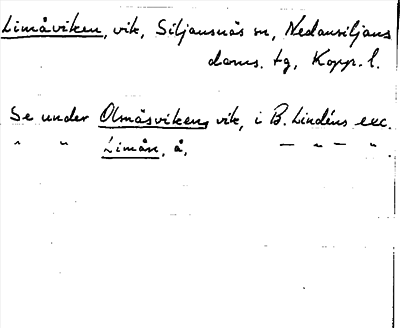 Limåviken, vik, Siljansnäs sn, Nedansiljans
doms. tg, Kopp. l.
Se under Olmåsviken, vik, i B. Lindéns exc.
" " Limån, å, — " — "